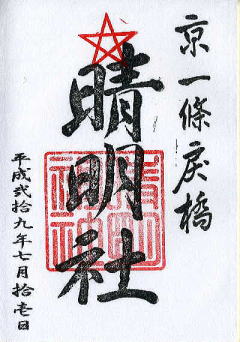 京一條戻橋
晴明社
平成弐拾九年七月拾壱日